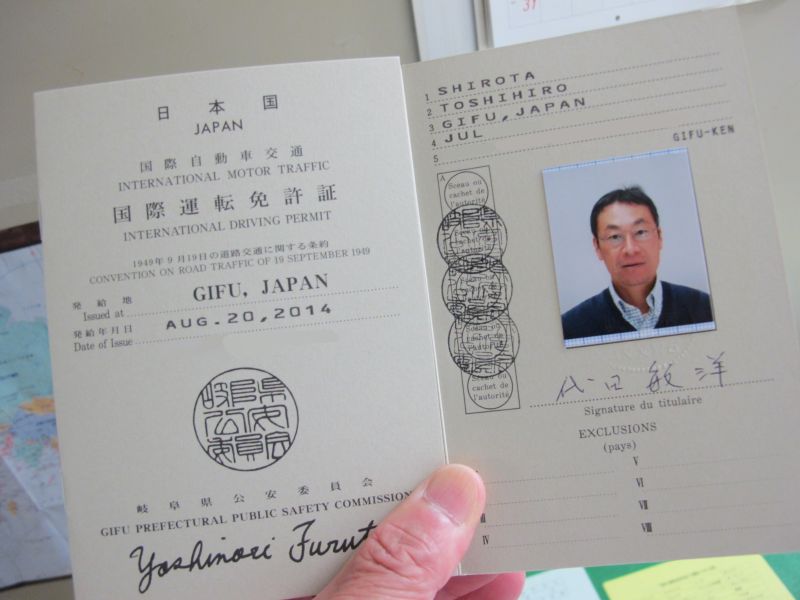 日本国
JAPAN
国際自動車交通
INTERNATIONAL MOTOR TRAFFIC
国際運転免許証
INTERNATIONAL DRIVING PERMIT
1949年9月19日の道路交通に関する条約
CONVENTION ON ROAD TRAFFIC OF 19 SEPTEMBER 1949
発給地
Issued at GIFU, JAPAN
発給年月日
Date of Issue AUG.20,2014
岐阜県公安委員会
岐阜県公安委員会
GIFU PREFECTURAL PUBLIC SAFETY COMMISSION
Yoshinori
31
1 SHIROTA
2 TOSHIHIRO
3 GIFU,JAPAN
4 JUL
5 GIFU-KEN
A
Sceau ou
cachet de
l'autorité
Sceau ou
cachet de
l'autorité
代口敏洋
Signature du titulaire
EXCLUSIONS
(pays)
V
VI
VII
IV VIII